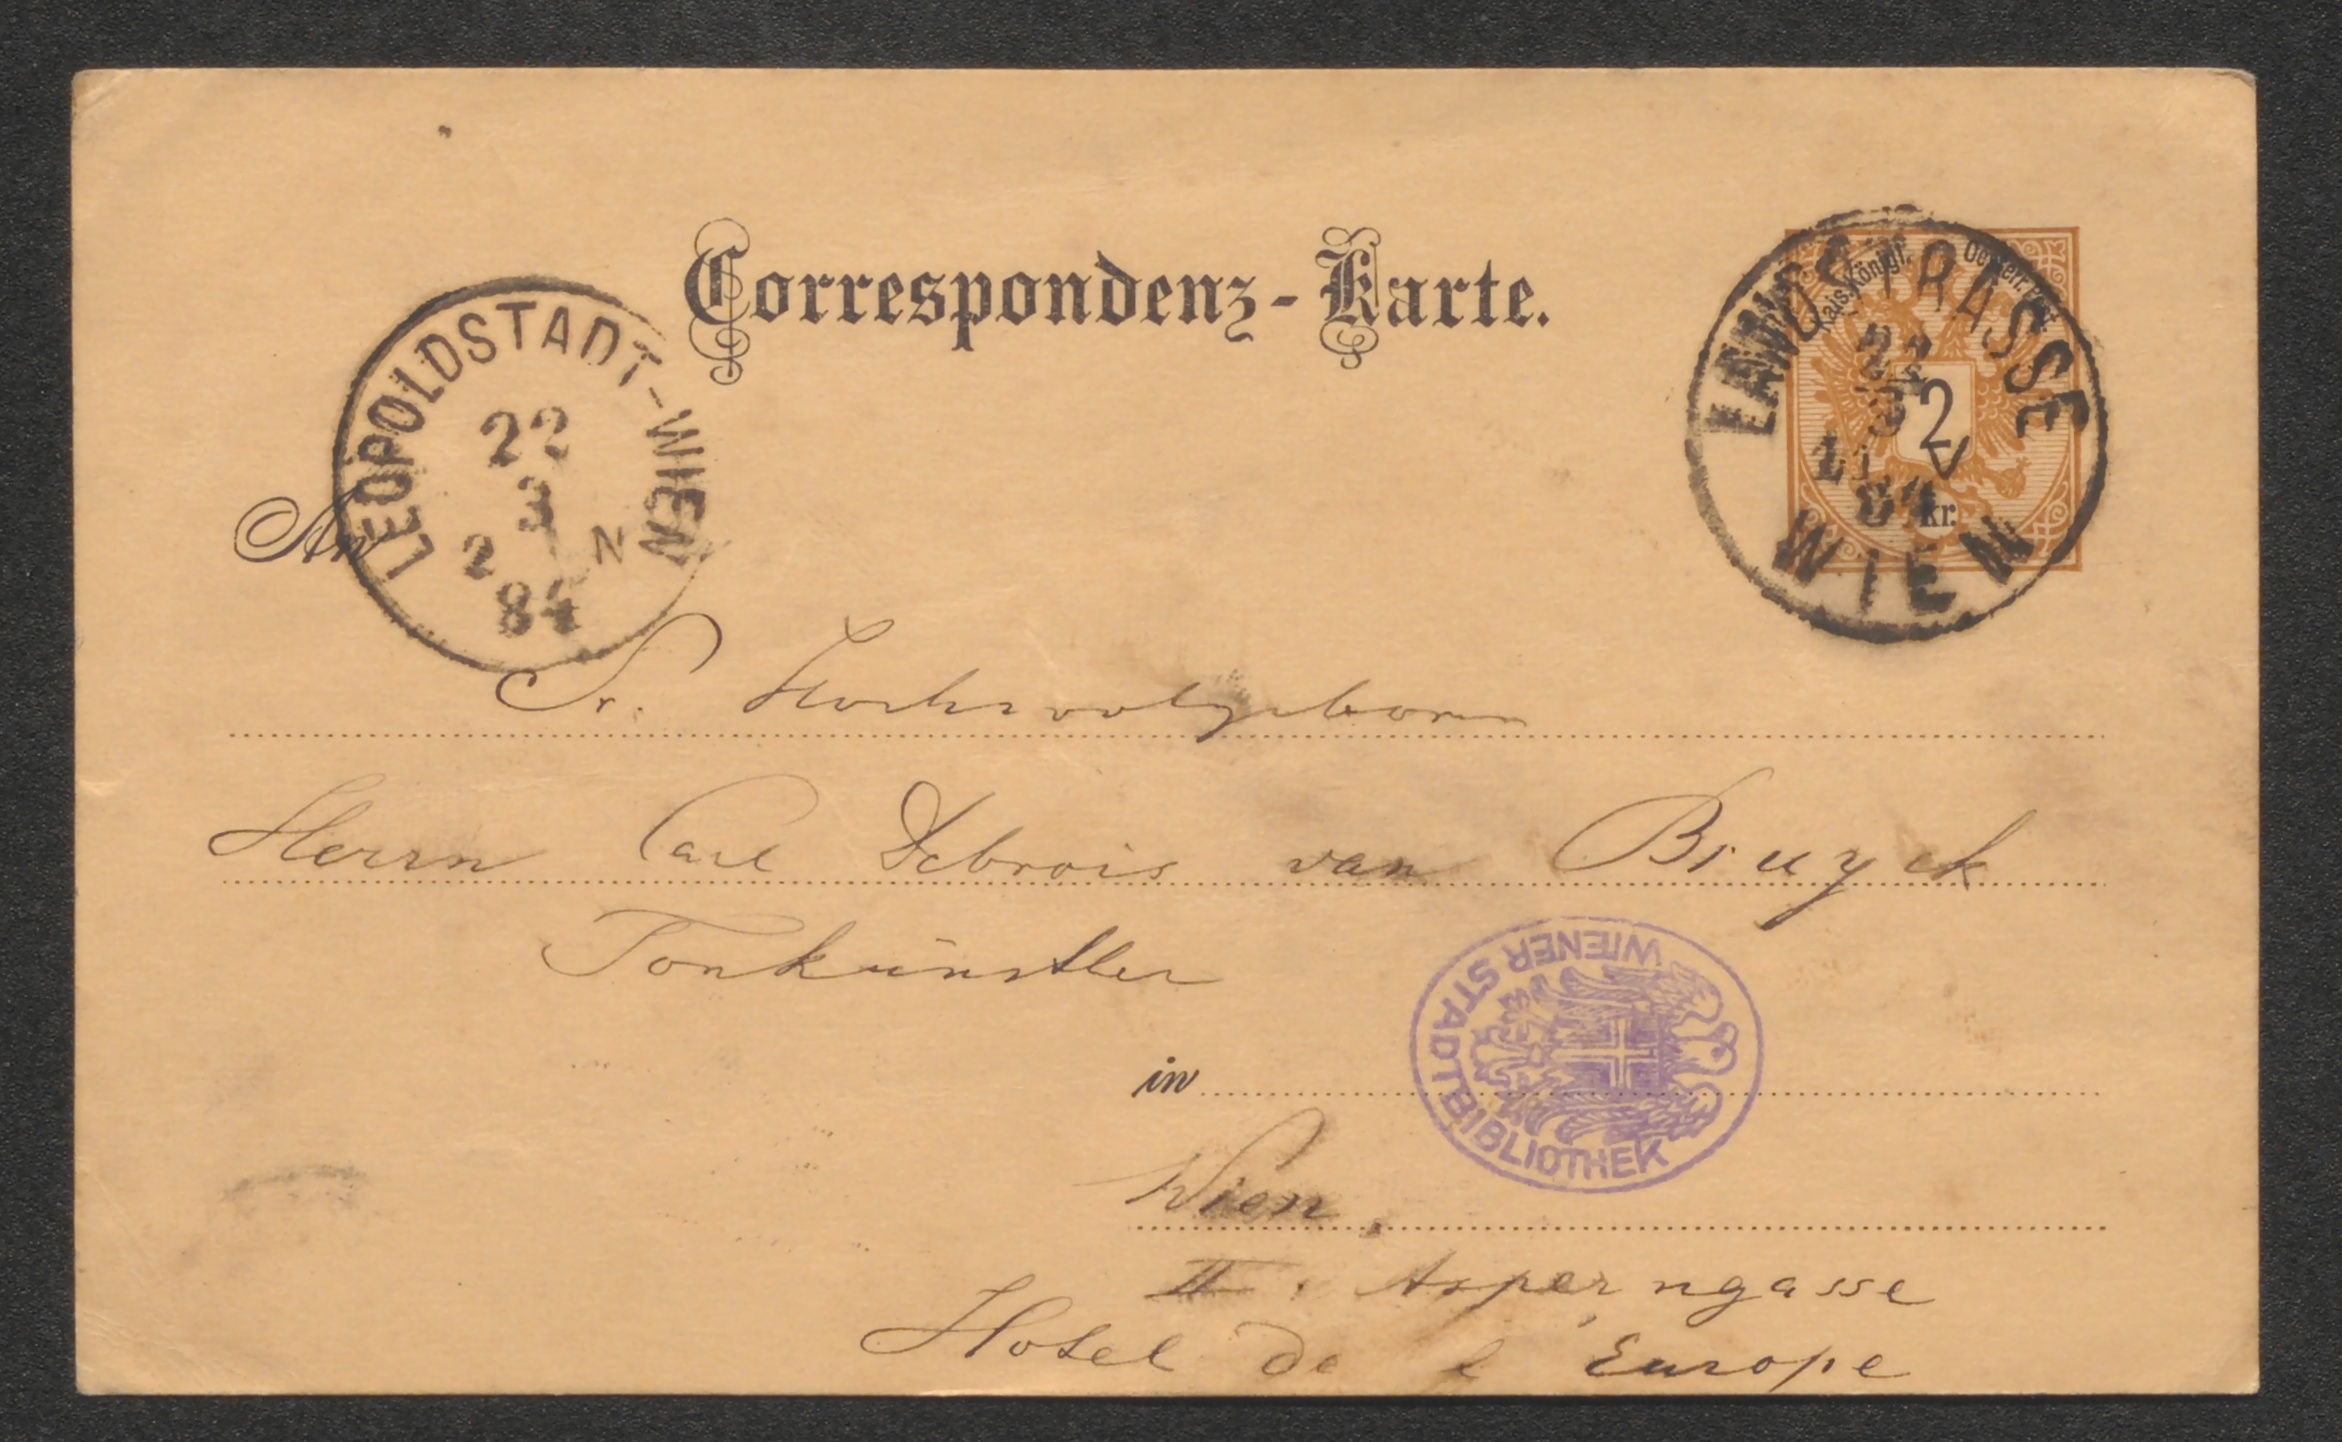 Correspondenz-Karte.
LEOPOLDSTADT-WIEN
22
3
2 N
84
Kais. Königl. Oesterr. Post.
2
kr.
LANDSTRASSE
22
3
84
WIEN
An
Sr. Hochwolgeboren
Herrn Carl Debrois van Bruyck
Tonkünstler
WIENER STADTBIBLIOTHEK
in
Wien,
II. Asperngasse
Hotel de l'Europe